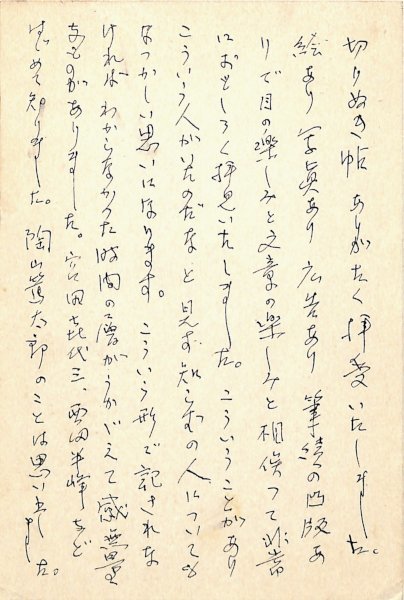 切りぬき帖 ありがたく拝受いたしました。
絵あり 写真あり 広告あり 筆績の凸版あ
りで目の楽しみと文章の楽しみと相俟つて非常
におもしろく拝見いたしました。こういうことがあり
こういう人がいたのだな、と見ず知らずの人についても
なつかしい思いになります。こういう形で記されな
ければわからなかつた時間の層がうかびえて感無量
なものがありました。宮田喜代三、西田半峰など
はじめて知りました。陶山篤太郎のことは思い出しました。